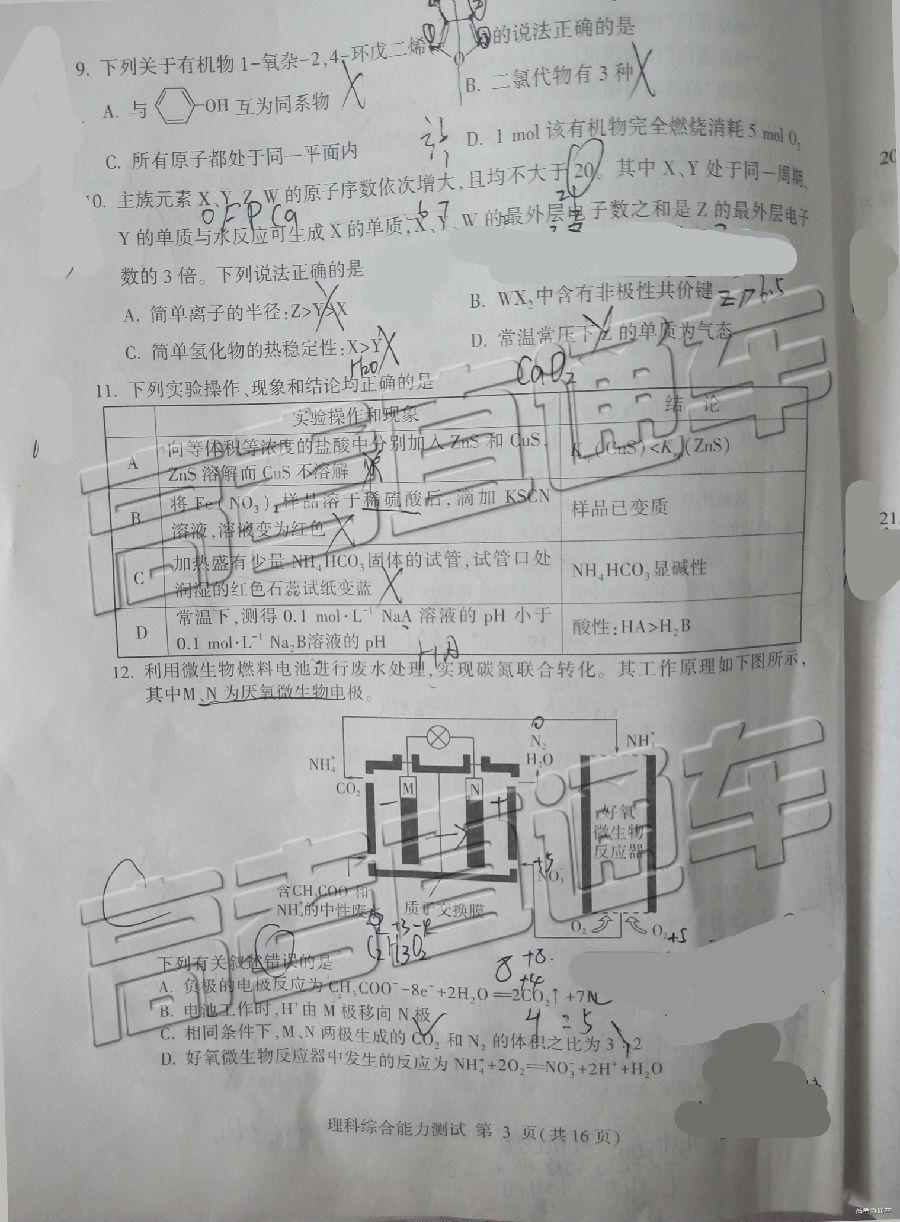 9. 下列关于有机物1-氧杂-2,4-环戊二烯 的说法正确的是
A. 与 -OH 互为同系物
B. 二氯代物有3种
C. 所有原子都处于同一平面内
D. 1 mol该有机物完全燃烧消耗5 mol O₂
10. 主族元素X、Y、Z、W的原子序数依次增大,且均不大于20。其中X、Y处于同一周期,
O F P Ca
Y的单质与水反应可生成X的单质,X、Y、W的最外层电子数之和是Z的最外层电子
数的3倍。下列说法正确的是
A. 简单离子的半径:Z>Y>X
B. WX₂中含有非极性共价键
C. 简单氢化物的热稳定性:X>Y
D. 常温常压下Z的单质为气态
H₂O
CaO₂
11. 下列实验操作、现象和结论均正确的是
实验操作和现象
结 论
A
向等体积等浓度的盐酸中分别加入ZnS和CuS,
ZnS溶解而CuS不溶解
(CuS)<K (ZnS)
B
将Fe(NO₃)₂样品溶于稀硫酸后,滴加KSCN
溶液,溶液变为红色
样品已变质
C
加热盛有少量NH₄HCO₃固体的试管,试管口处
润湿的红色石蕊试纸变蓝
NH₄HCO₃显碱性
D
常温下,测得0.1 mol·L⁻¹ NaA溶液的pH小于
0.1 mol·L⁻¹ Na₂B溶液的pH
酸性:HA>H₂B
HA
12. 利用微生物燃料电池进行废水处理,实现碳氮联合转化。其工作原理如下图所示,
其中M、N为厌氧微生物电极。
NH₄⁺
CO₂
M
N
N₂
H₂O
NH₄⁺
好氧
微生物
反应器
NO₃⁻
含CH₃COO⁻和
NH₄⁺的中性废水
质子交换膜
O₂
O₂
下列有关叙述错误的是
A. 负极的电极反应为CH₃COO⁻-8e⁻+2H₂O=2CO₂↑+7H
B. 电池工作时,H⁺由M极移向N极
C. 相同条件下,M、N两极生成的CO₂和N₂的体积之比为3:2
D. 好氧微生物反应器中发生的反应为NH₄⁺+2O₂=NO₃⁻+2H⁺+H₂O
理科综合能力测试 第 3 页(共16页)
20
21.
高考直通车
高考直通车
高考直通车